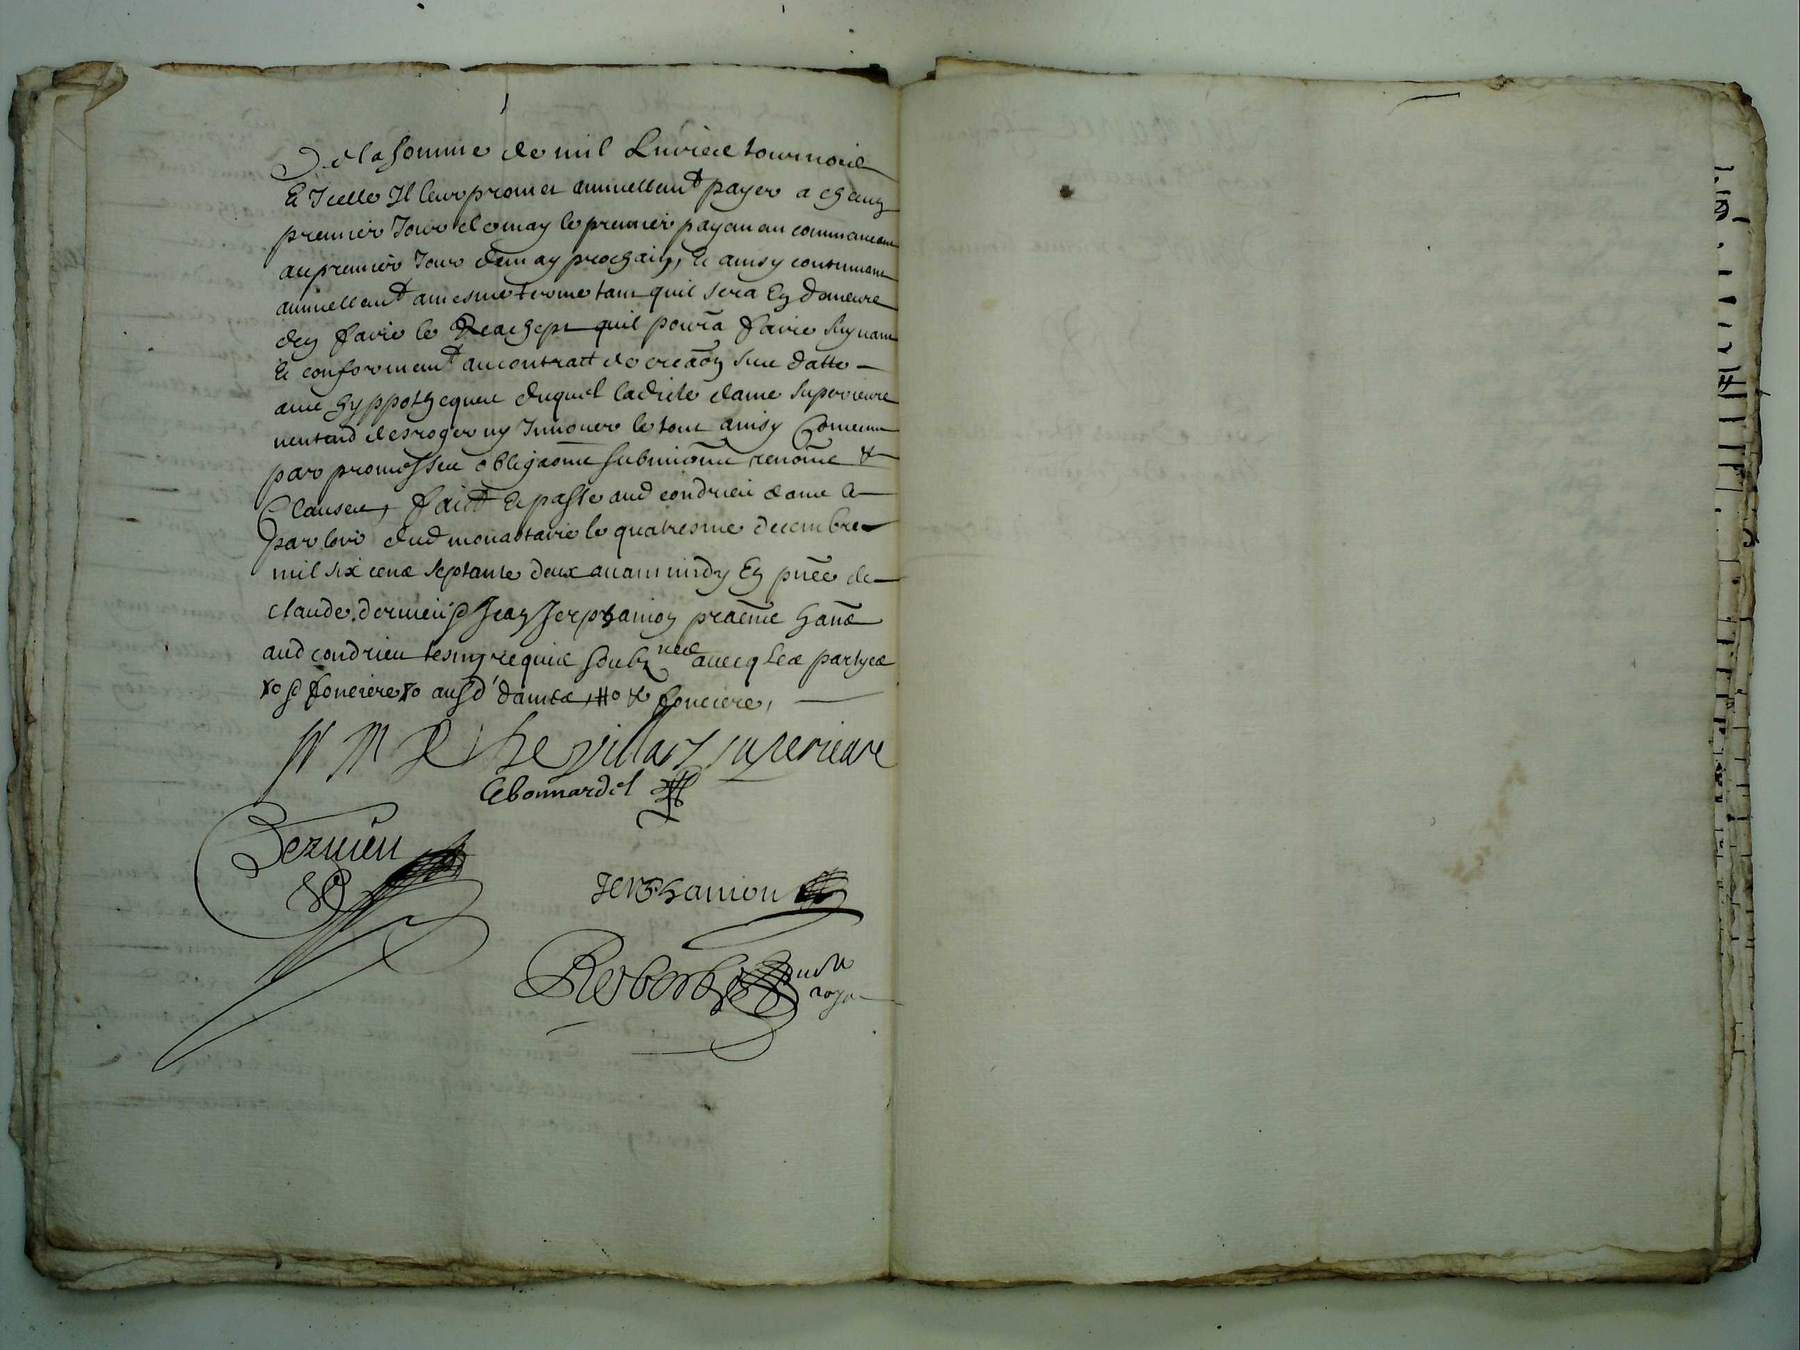 De la somme de mil Livres tournois
Et Icelle Il leur promet annuellemt payer a chaung
premier Jour de may le premier payemen commancant
au premier Jour de may prochain, Et ainsy continuant
annuellemt a mesme terme tant quil sera En demeure
den faire le Reachept quil poura faire suyvant
Et conformemt au contratt de creaōn sus datte
aux hyppotheques duquel ladicte dame superieure
nentend desroger ny Innouer le tout ainsy Conuenu
par promesses obligaōns submiōns renōns &
Clauses, faict Et passe aud condrieu dans le
parloir dud monastaire le quatriesme decembre
mil six cens septante deux auant midy En pn̄ce de
claude dernieu & Jean Jerphanion praēns han̄s
aud condrieu tesmg requis soubznes auecq les partyes
fonciere ausd dames fonciere,
de villars superieure
Cebonnardel
Dernieu
Jerphanion
Robert
royal